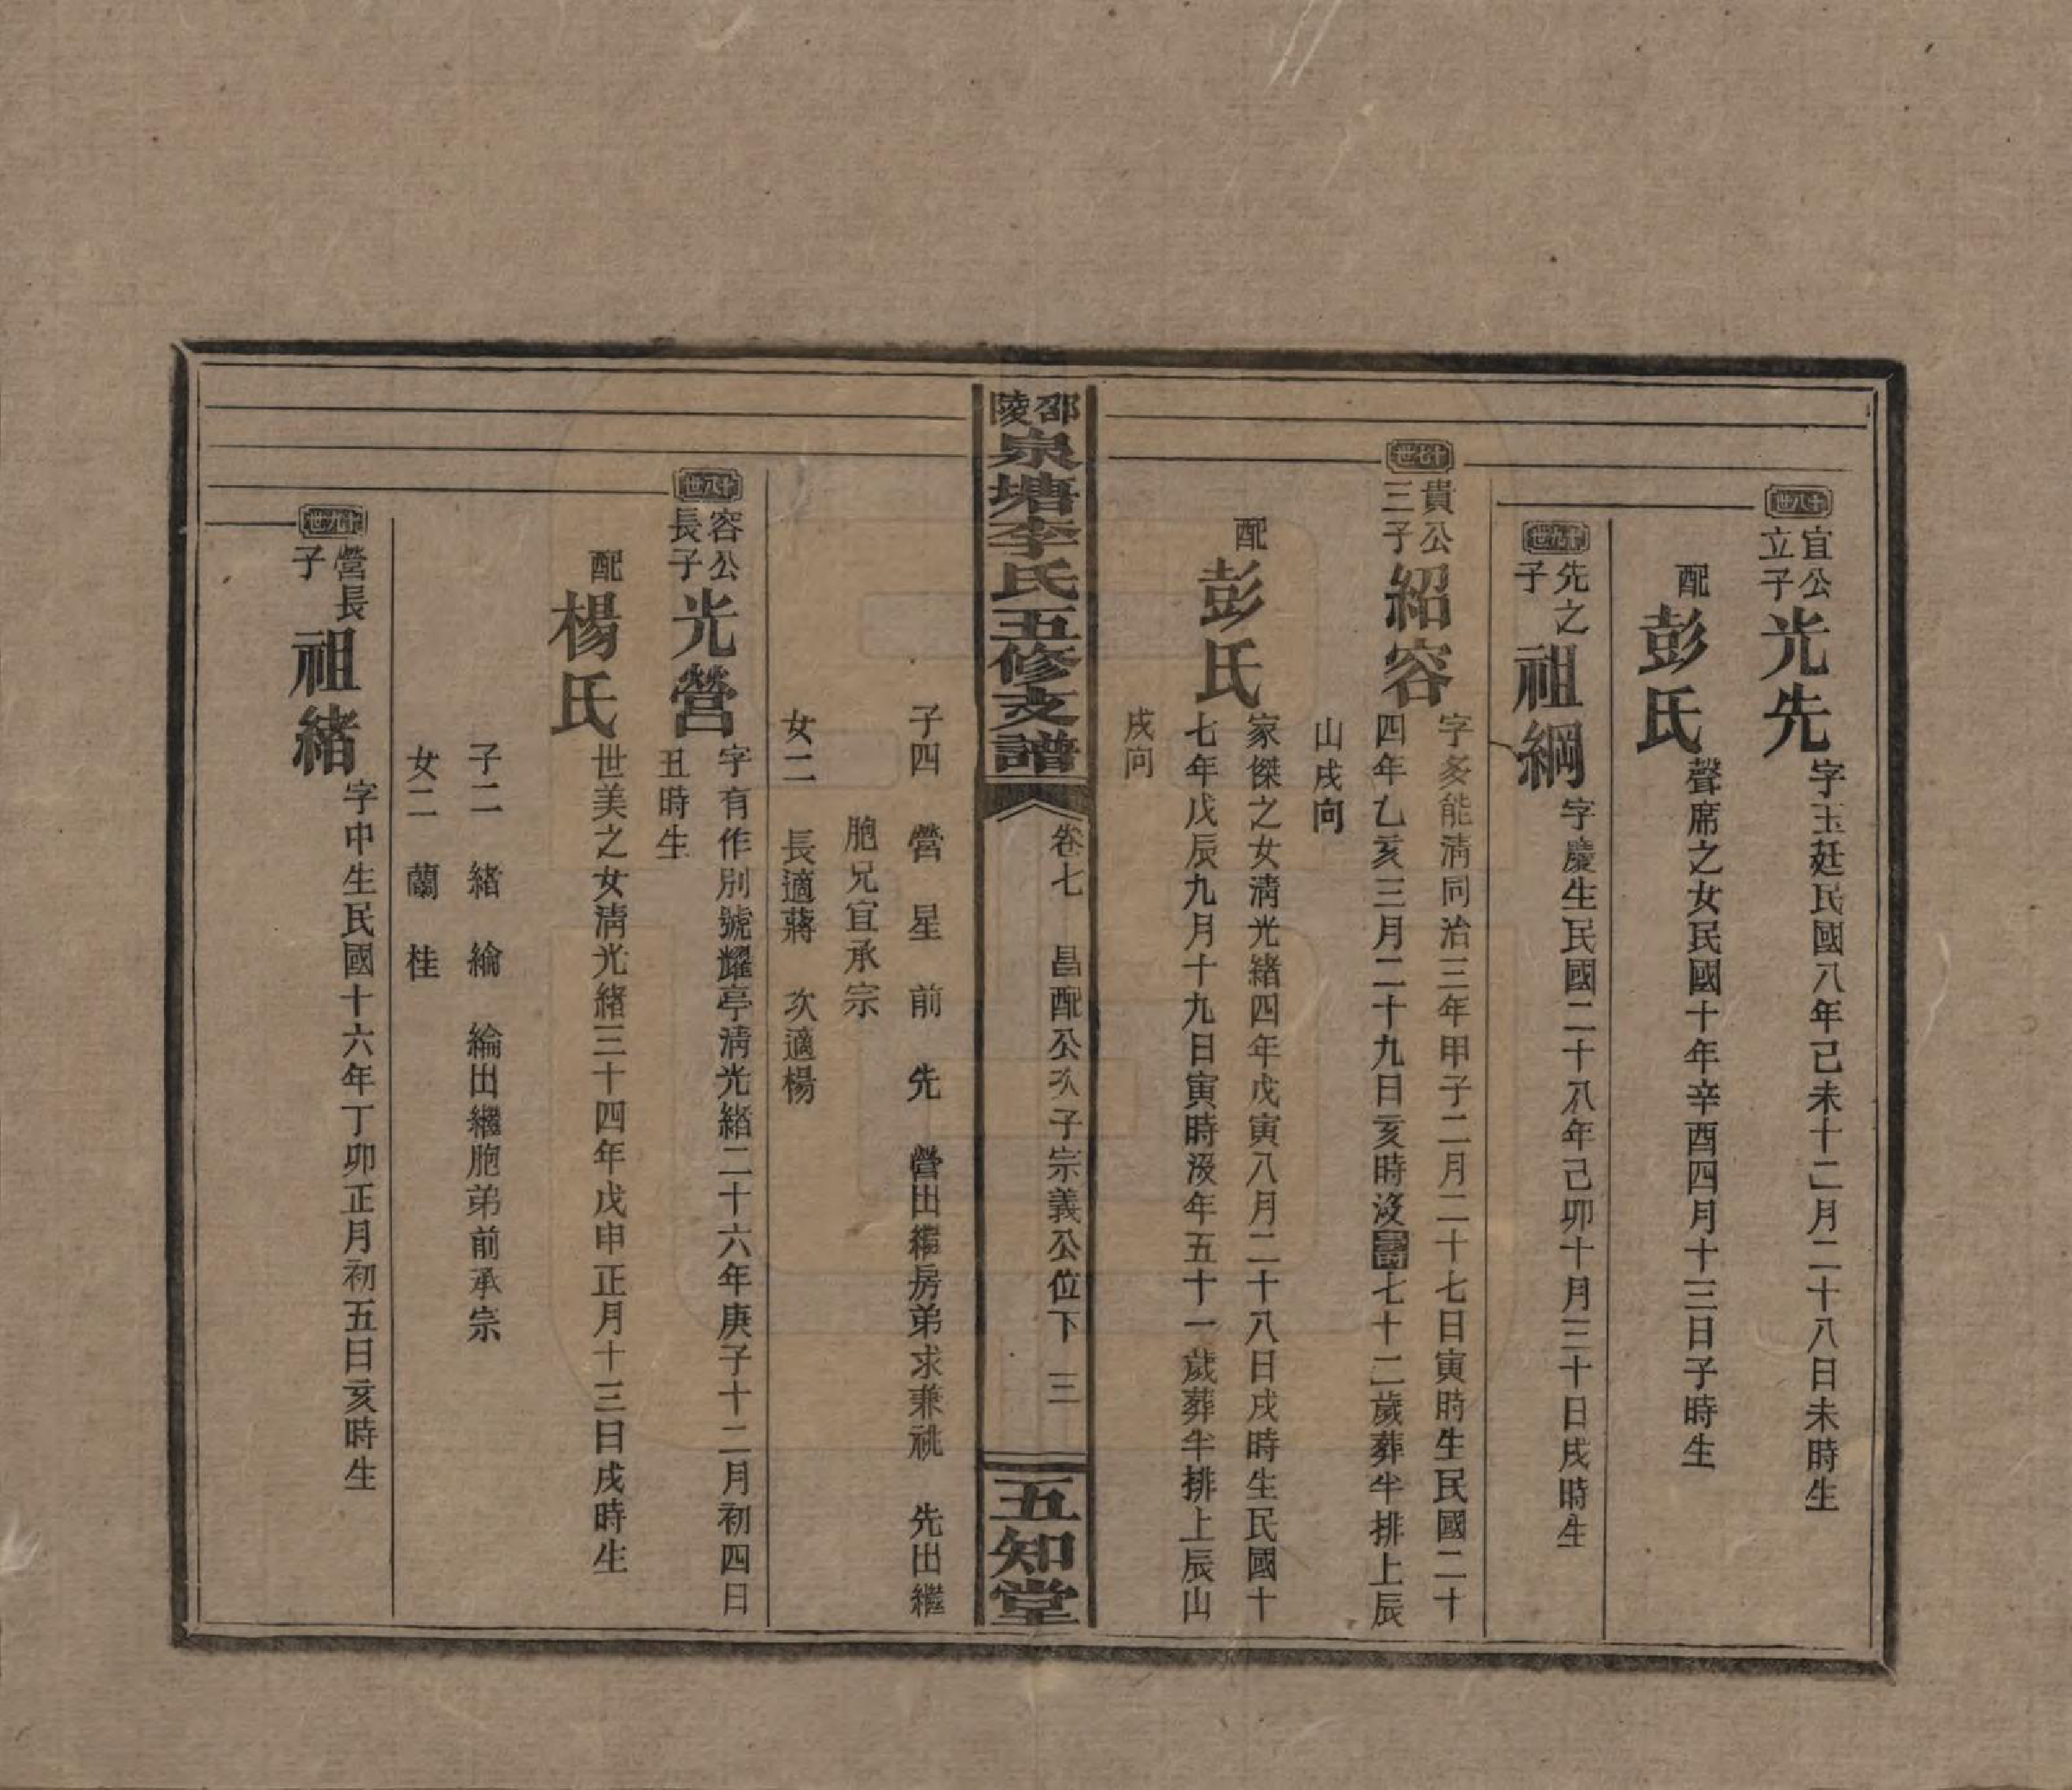 十八世
宜公
立子
光先
字玉廷民國八年己未十二月二十八日未時生
配
彭氏
聲席之女民國十年辛酉四月十三日子時生
十九世
先之
子
祖綱
字慶生民國二十八年己卯十月三十日戌時生
十七世
貴公
三子
紹容
字多能淸同治三年甲子二月二十七日寅時生民國二十
四年乙亥三月二十九日亥時沒壽七十二歲葬半排上辰
山戌向
配
彭氏
家傑之女淸光緒四年戊寅八月二十八日戌時生民國十
七年戊辰九月十九日寅時沒年五十一歲葬半排上辰山
戌向
邵陵
泉塘李氏五修支譜
卷七 昌配公次子宗義公位下 三
五知堂
子四 營 星 前 先 營出繼房弟求兼祧 先出繼
胞兄宜承宗
女二 長適蔣 次適楊
十八世
容公
長子
光營
字有作別號耀亭淸光緒二十六年庚子十二月初四日
丑時生
配
楊氏
世美之女淸光緒三十四年戊申正月十三日戌時生
子二 緒 綸 綸出繼胞弟前承宗
女二 蘭 桂
十九世
營長
子
祖緒
字中生民國十六年丁卯正月初五日亥時生